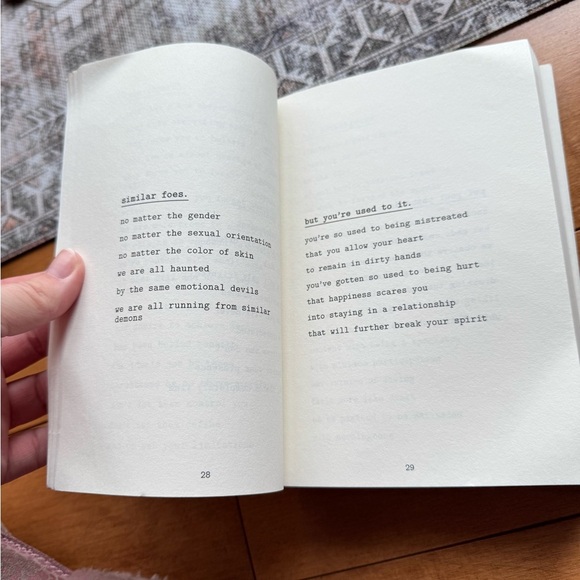 similar foes.
no matter the gender
no matter the sexual orientation
no matter the color of skin
we are all haunted
by the same emotional devils
we are all running from similar
demons
28
but you're used to it.
you're so used to being mistreated
that you allow your heart
to remain in dirty hands
you've gotten so used to being hurt
that happiness scares you
into staying in a relationship
that will further break your spirit
29